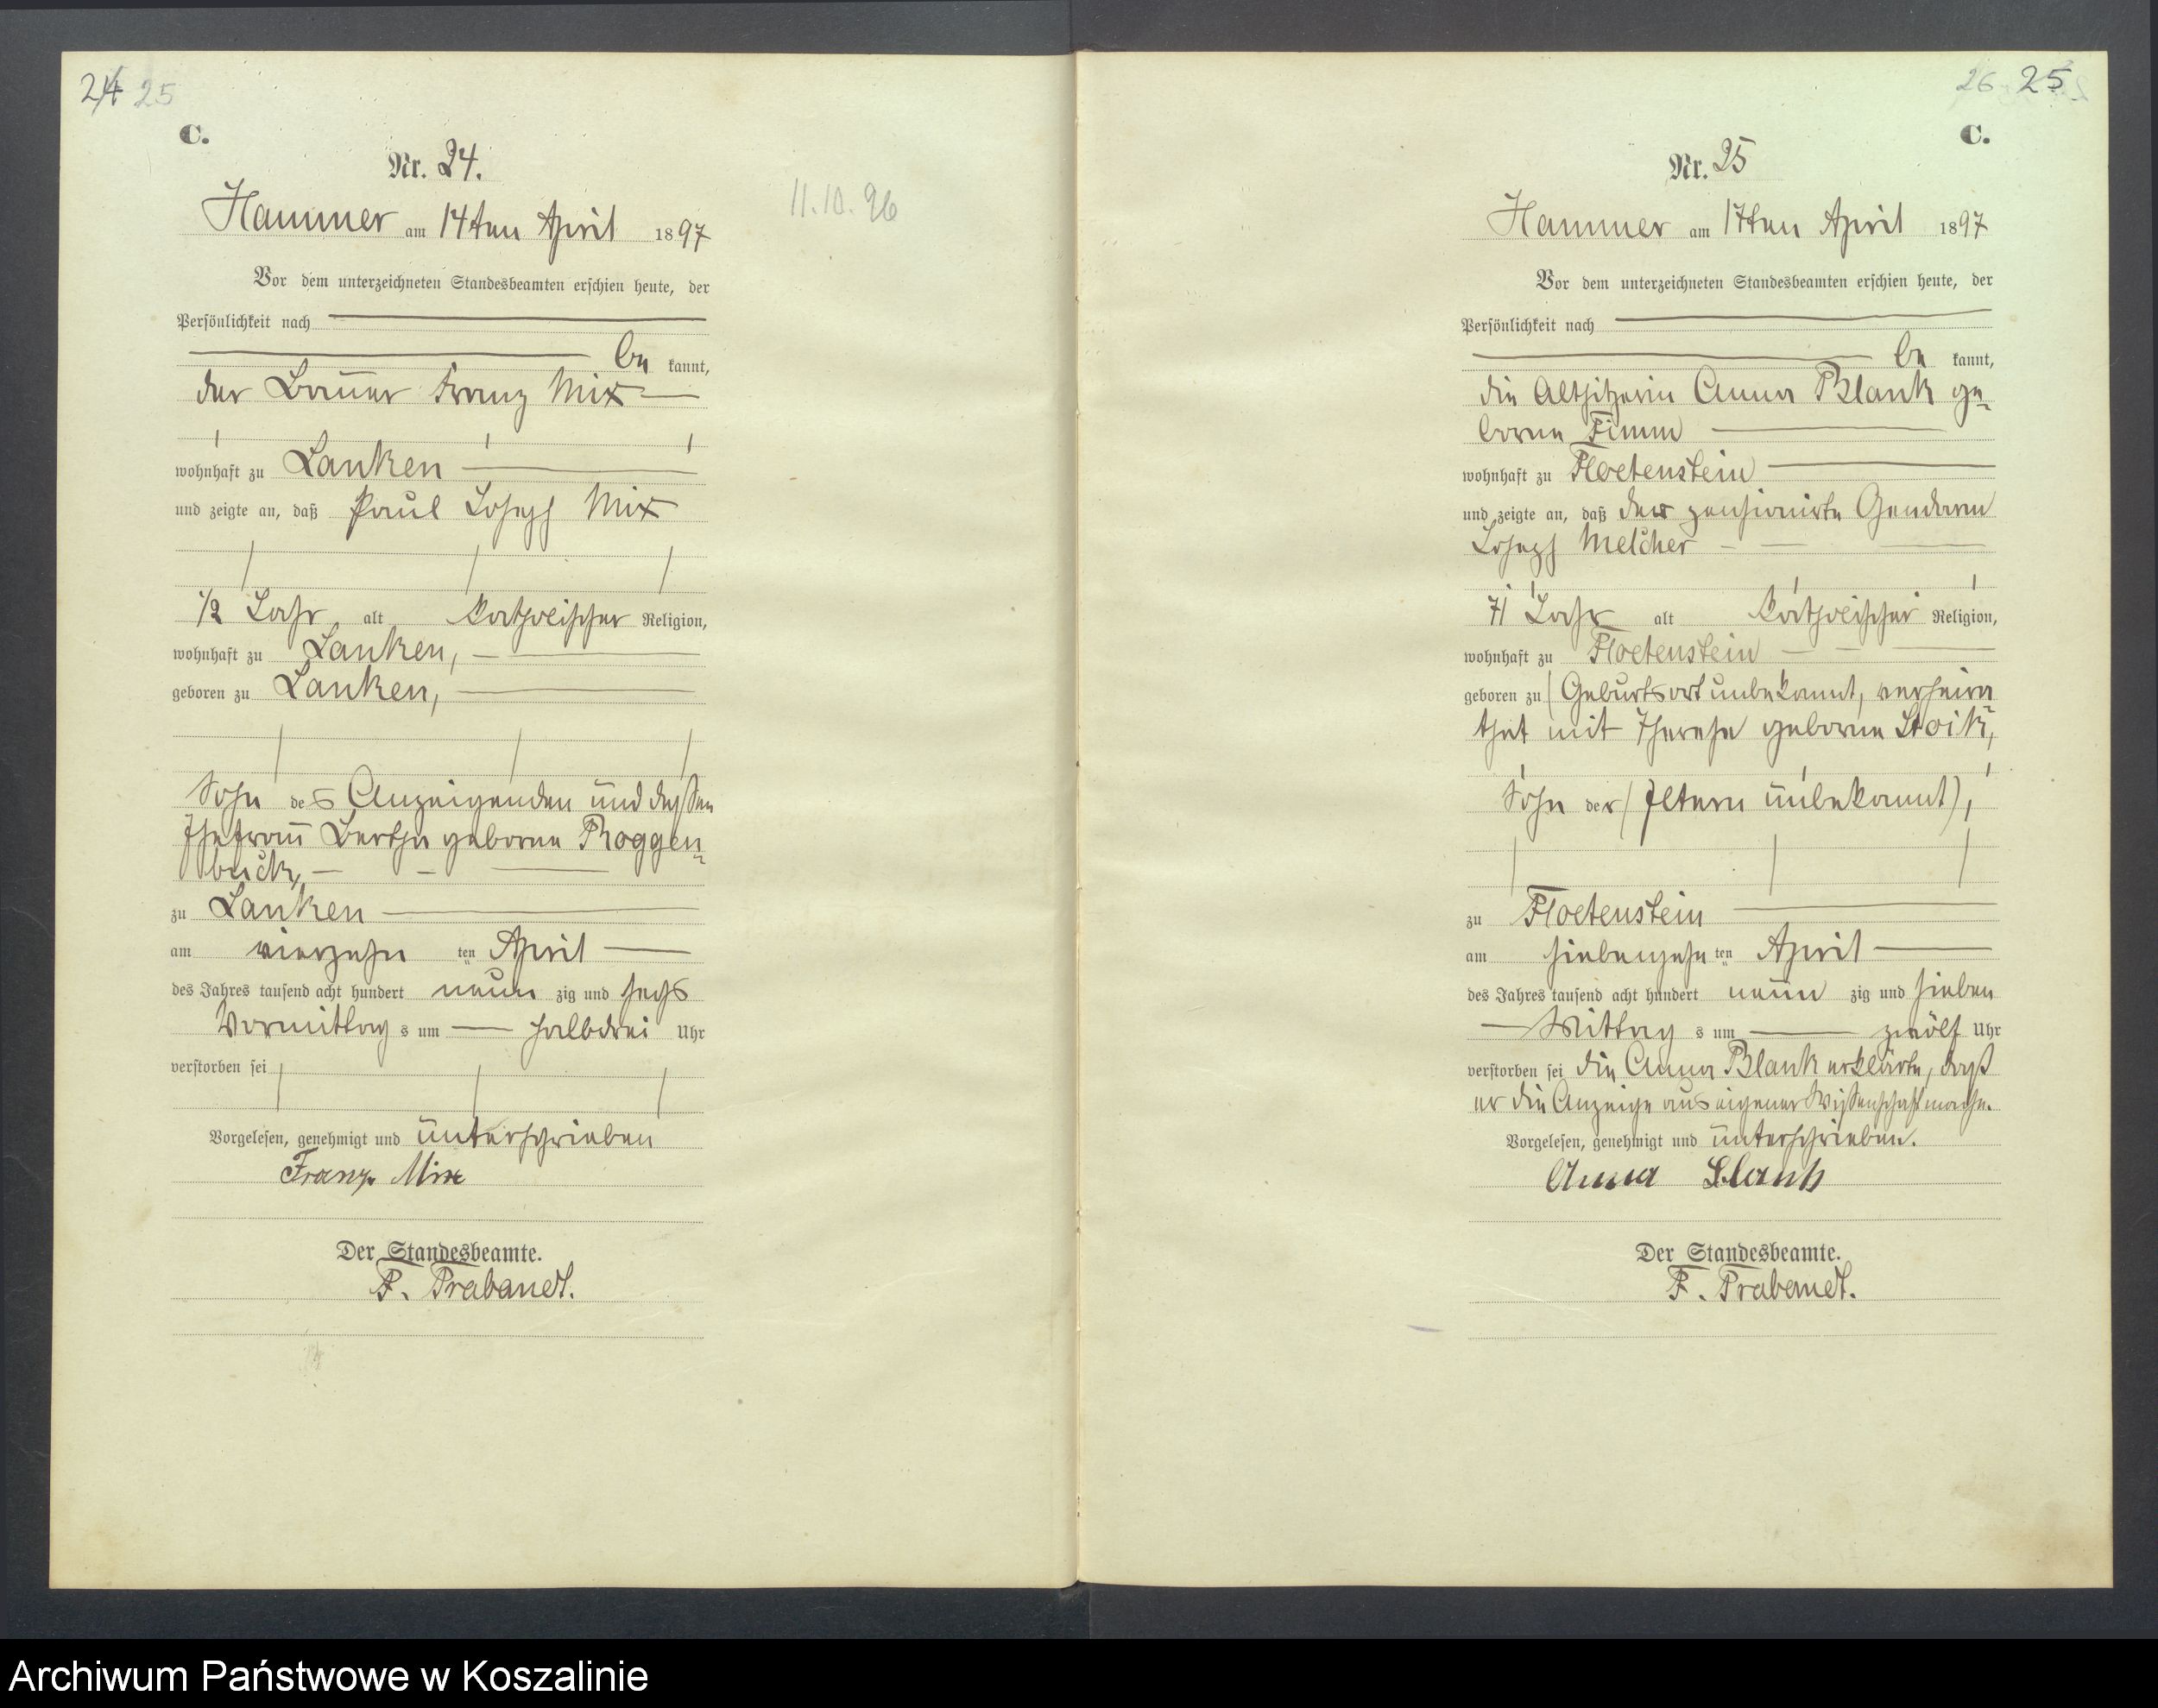 24 25
C.
Nr. 24.
11.10.96
Hammer am 14ten April 1897
Vor dem unterzeichneten Standesbeamten erschien heute, der
Persönlichkeit nach
be kannt,
der Bauer Franz Mix
wohnhaft zu Lanken
und zeigte an, daß Paul Joseph Mix
1/2 Jahr alt katholischer Religion,
wohnhaft zu Lanken,
geboren zu Lanken,
Sohn des Anzeigenden und dessen
Ehefrau Bertha geborne Roggen-
buck,
zu Lanken
am vierzehn ten April
des Jahres tausend acht hundert neun zig und sechs
Vormittag s um halbdrei Uhr
verstorben sei
Vorgelesen, genehmigt und unterschrieben
Franz Mix
Der Standesbeamte.
F. Prabandt.
26 25
C.
Nr. 25
Hammer am 17ten April 1897
Vor dem unterzeichneten Standesbeamten erschien heute, der
Persönlichkeit nach
be kannt,
die Altsitzerin Anna Blank ge-
borne Timm
wohnhaft zu Floetenstein
und zeigte an, daß der pensionirte Gendarm
Joseph Melcher
71 Jahr alt katholischer Religion,
wohnhaft zu Floetenstein
geboren zu (Geburtsort unbekannt, verheira
thet mit Therese geborne Stoik,
Sohn der (Eltern unbekannt),
zu Floetenstein
am siebenzehn ten April
des Jahres tausend acht hundert neun zig und sieben
Mittag s um zwölf Uhr
verstorben sei die Anna Blank erklärte, daß
er die Anzeige aus eigener Wissenschaft mache.
Vorgelesen, genehmigt und unterschrieben.
Anna Blank
Der Standesbeamte.
F. Prabandt.
Archiwum Państwowe w Koszalinie